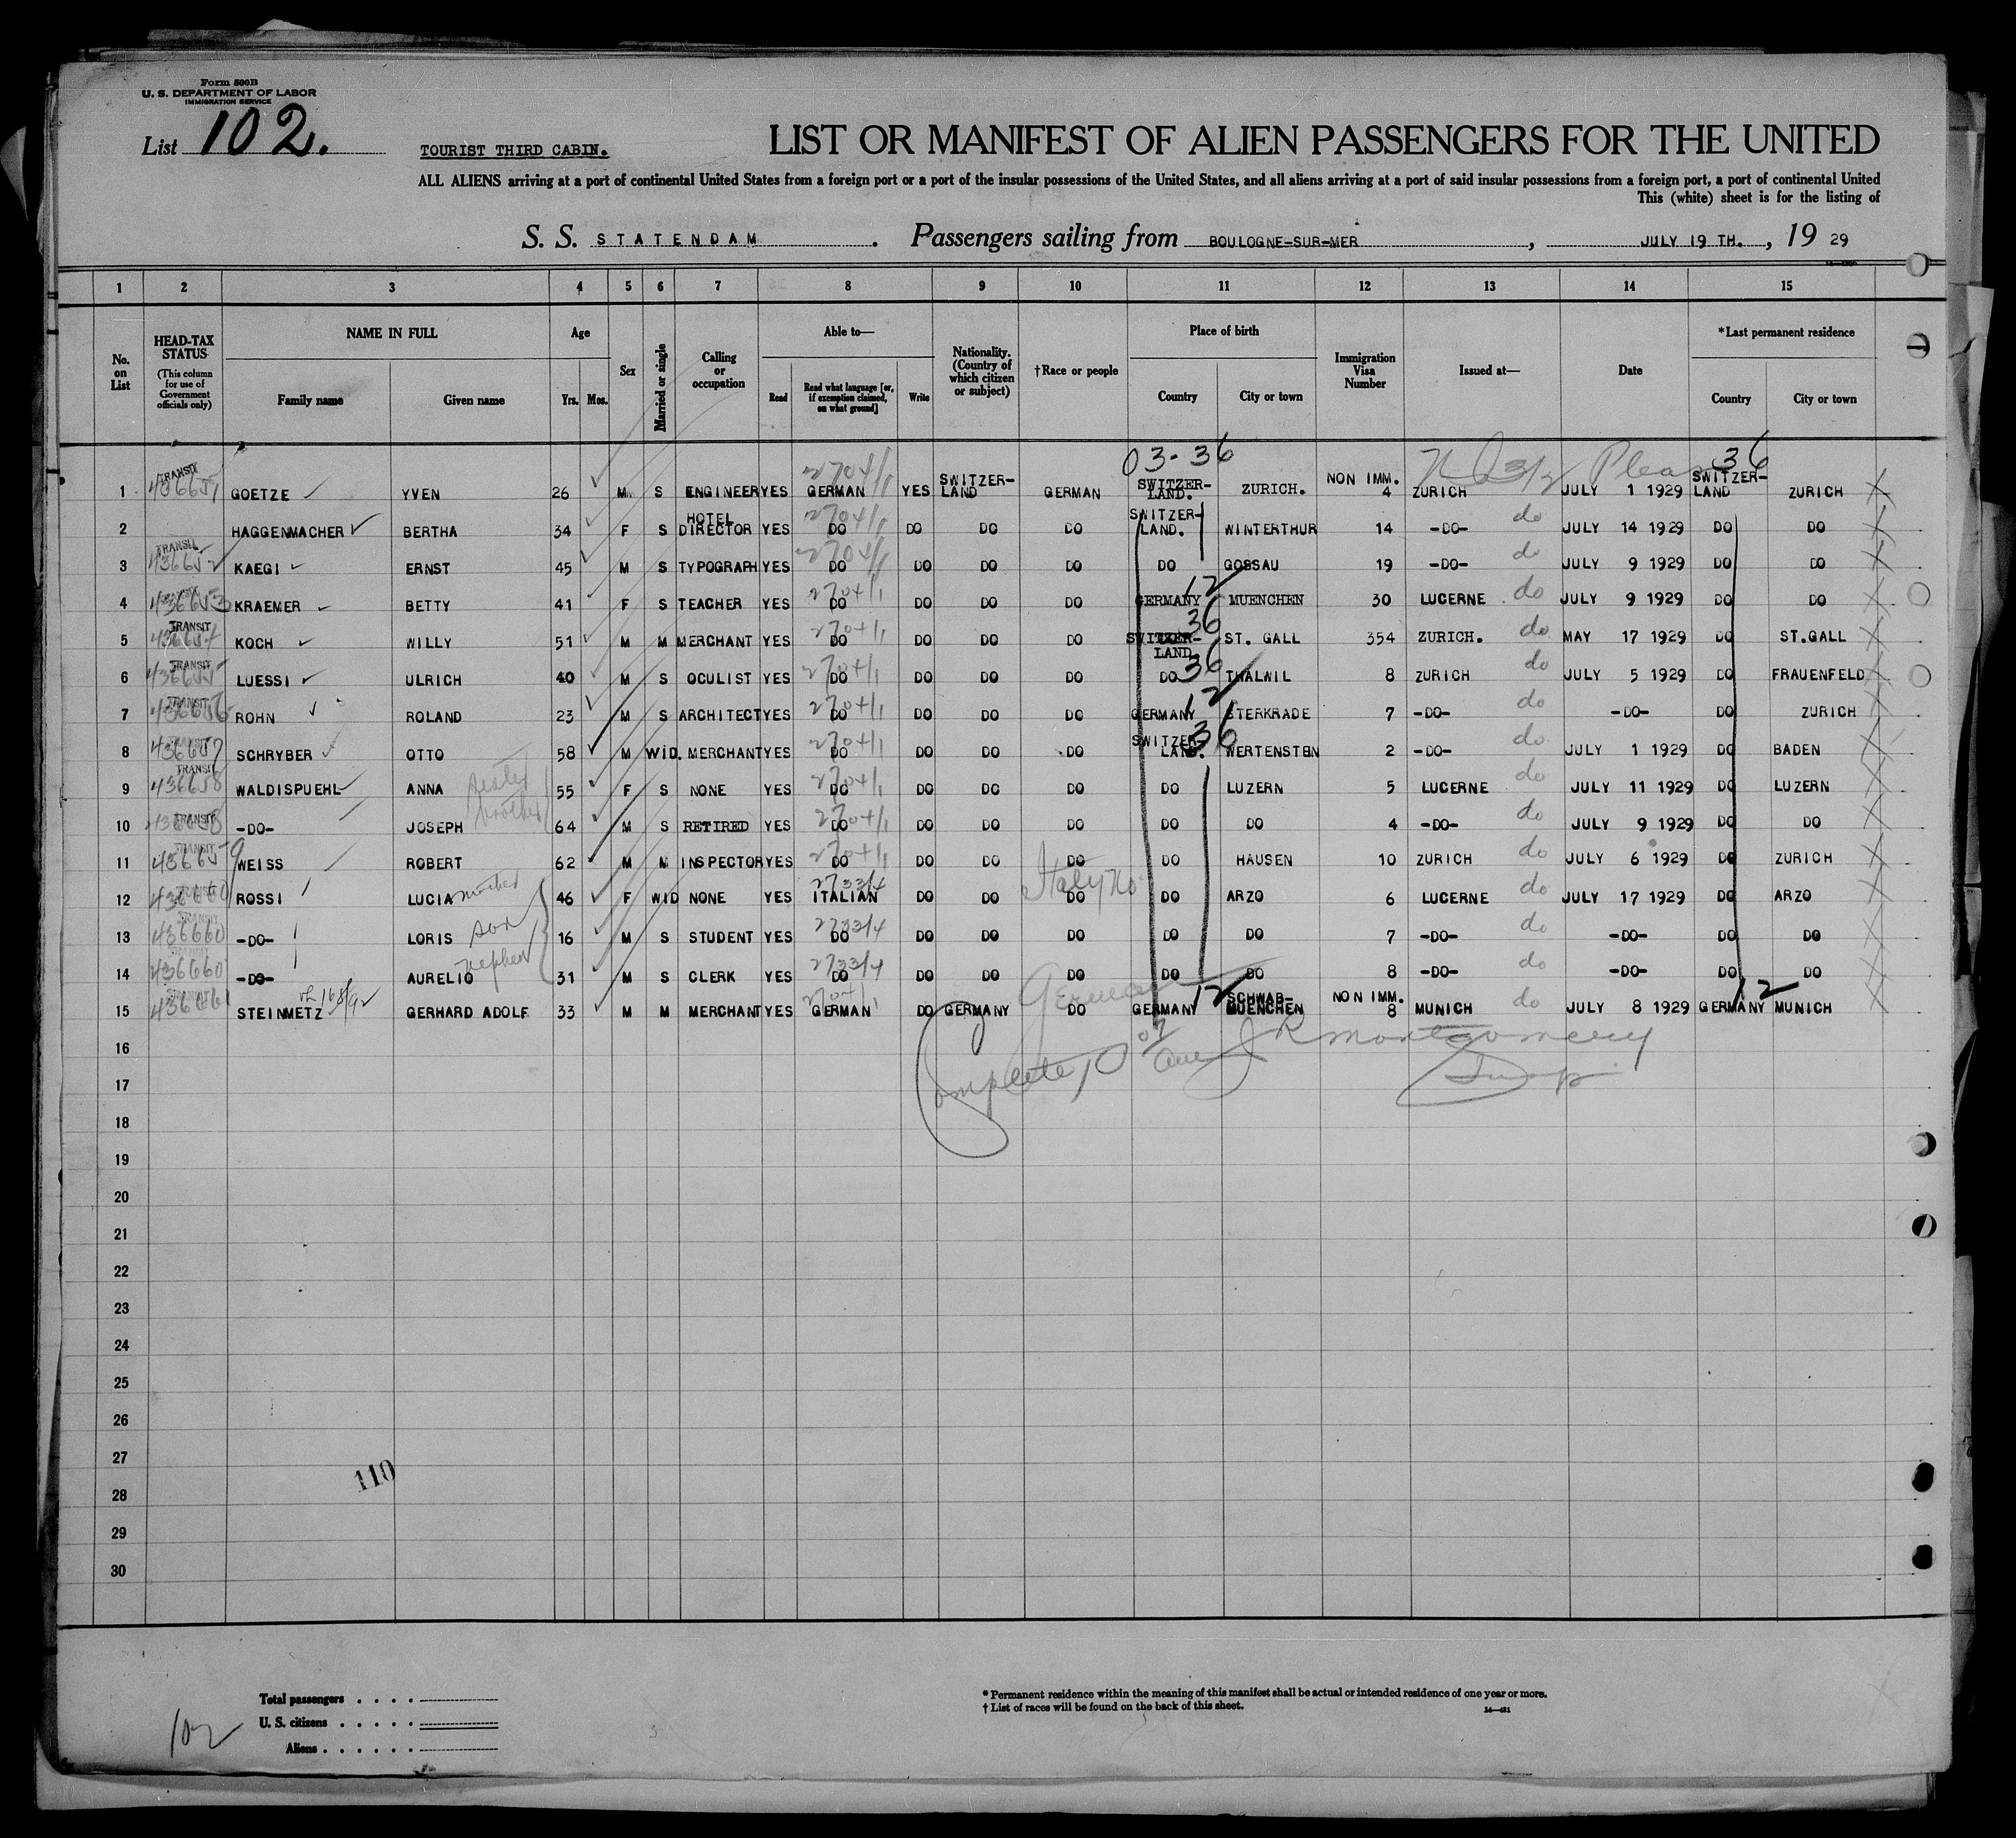 Form 500B
U. S. DEPARTMENT OF LABOR
IMMIGRATION SERVICE
List 102.
TOURIST THIRD CABIN.
LIST OR MANIFEST OF ALIEN PASSENGERS FOR THE UNITED
ALL ALIENS arriving at a port of continental United States from a foreign port or a port of the insular possessions of the United States, and all aliens arriving at a port of said insular possessions from a foreign port, a port of continental United
This (white) sheet is for the listing of
S. S. STATENDAM . Passengers sailing from BOULOGNE-SUR-MER , JULY 19 TH. , 19 29
1 2 3 4 5 6 7 8 9 10 11 12 13 14 15
No. on List
HEAD-TAX STATUS (This column for use of Government officials only)
NAME IN FULL Family name Given name
Age Yrs. Mos.
Sex
Married or single
Calling or occupation
Able to— Read Read what language [or, if exemption claimed, on what ground] Write
Nationality. (Country of which citizen or subject)
†Race or people
Place of birth Country City or town
Immigration Visa Number
Issued at—
Date
*Last permanent residence Country City or town
03-36 36
1 TRANSIT 436651 GOETZE YVEN 26 M S ENGINEER YES 2704/1 GERMAN YES SWITZER-LAND GERMAN SWITZER-LAND. ZURICH. NON IMM. 4 ZURICH JULY 1 1929 SWITZER-LAND ZURICH
2 HAGGENMACHER BERTHA 34 F S HOTEL DIRECTOR YES 2704/1 DO DO DO DO SWITZER-LAND. WINTERTHUR 14 -DO- do JULY 14 1929 DO DO
3 TRANSIT 436652 KAEGI ERNST 45 M S TYPOGRAPH YES 2704/1 DO DO DO DO DO GOSSAU 19 -DO- do JULY 9 1929 DO DO
4 436653 KRAEMER BETTY 41 F S TEACHER YES 2704/1 DO DO DO DO GERMANY 12 MUENCHEN 30 LUCERNE do JULY 9 1929 DO DO
5 TRANSIT 436654 KOCH WILLY 51 M M MERCHANT YES 2704/1 DO DO DO DO SWITZER-LAND 36 ST. GALL 354 ZURICH. do MAY 17 1929 DO ST.GALL
6 TRANSIT 436655 LUESSI ULRICH 40 M S OCULIST YES 2704/1 DO DO DO DO DO 36 THALWIL 8 ZURICH do JULY 5 1929 DO FRAUENFELD
7 TRANSIT 436656 ROHN ROLAND 23 M S ARCHITECT YES 2704/1 DO DO DO DO GERMANY 12 STERKRADE 7 -DO- do -DO- DO ZURICH
8 TRANSIT 436657 SCHRYBER OTTO 58 M WID. MERCHANT YES 2704/1 DO DO DO DO SWITZER-LAND. 36 WERTENSTEN 2 -DO- do JULY 1 1929 DO BADEN
9 TRANSIT 436658 WALDISPUEHL ANNA sister 55 F S NONE YES 2704/1 DO DO DO DO DO LUZERN 5 LUCERNE do JULY 11 1929 DO LUZERN
10 TRANSIT 436658 -DO- JOSEPH brother 64 M S RETIRED YES 2704/1 DO DO DO DO DO DO 4 -DO- do JULY 9 1929 DO DO
11 TRANSIT 436659 WEISS ROBERT 62 M M INSPECTOR YES 2704/1 DO DO DO DO DO HAUSEN 10 ZURICH do JULY 6 1929 DO ZURICH
12 TRANSIT 436660 ROSSI LUCIA mother 46 F WID NONE YES 2733/4 ITALIAN DO DO DO Italy No. DO ARZO 6 LUCERNE do JULY 17 1929 DO ARZO
13 TRANSIT 436660 -DO- LORIS son 16 M S STUDENT YES 2733/4 DO DO DO DO DO DO 7 -DO- do -DO- DO DO
14 436660 -DO- AURELIO nephew 31 M S CLERK YES 2733/4 DO DO DO DO DO DO 8 -DO- do -DO- DO DO
15 TRANSIT 436661 STEINMETZ GERHARD ADOLF 33 M M MERCHANT YES 2704/1 GERMAN DO GERMANY German DO GERMANY 12 SCHWAB-MUENCHEN NON IMM. 8 MUNICH do JULY 8 1929 GERMANY 12 MUNICH
16
Complete JR Montgomery
17
Insp.
18
19
20
21
22
23
24
25
26
27
110
28
29
30
Total passengers . . . .
U. S. citizens . . . . .
Aliens . . . . . .
102
* Permanent residence within the meaning of this manifest shall be actual or intended residence of one year or more.
† List of races will be found on the back of this sheet.